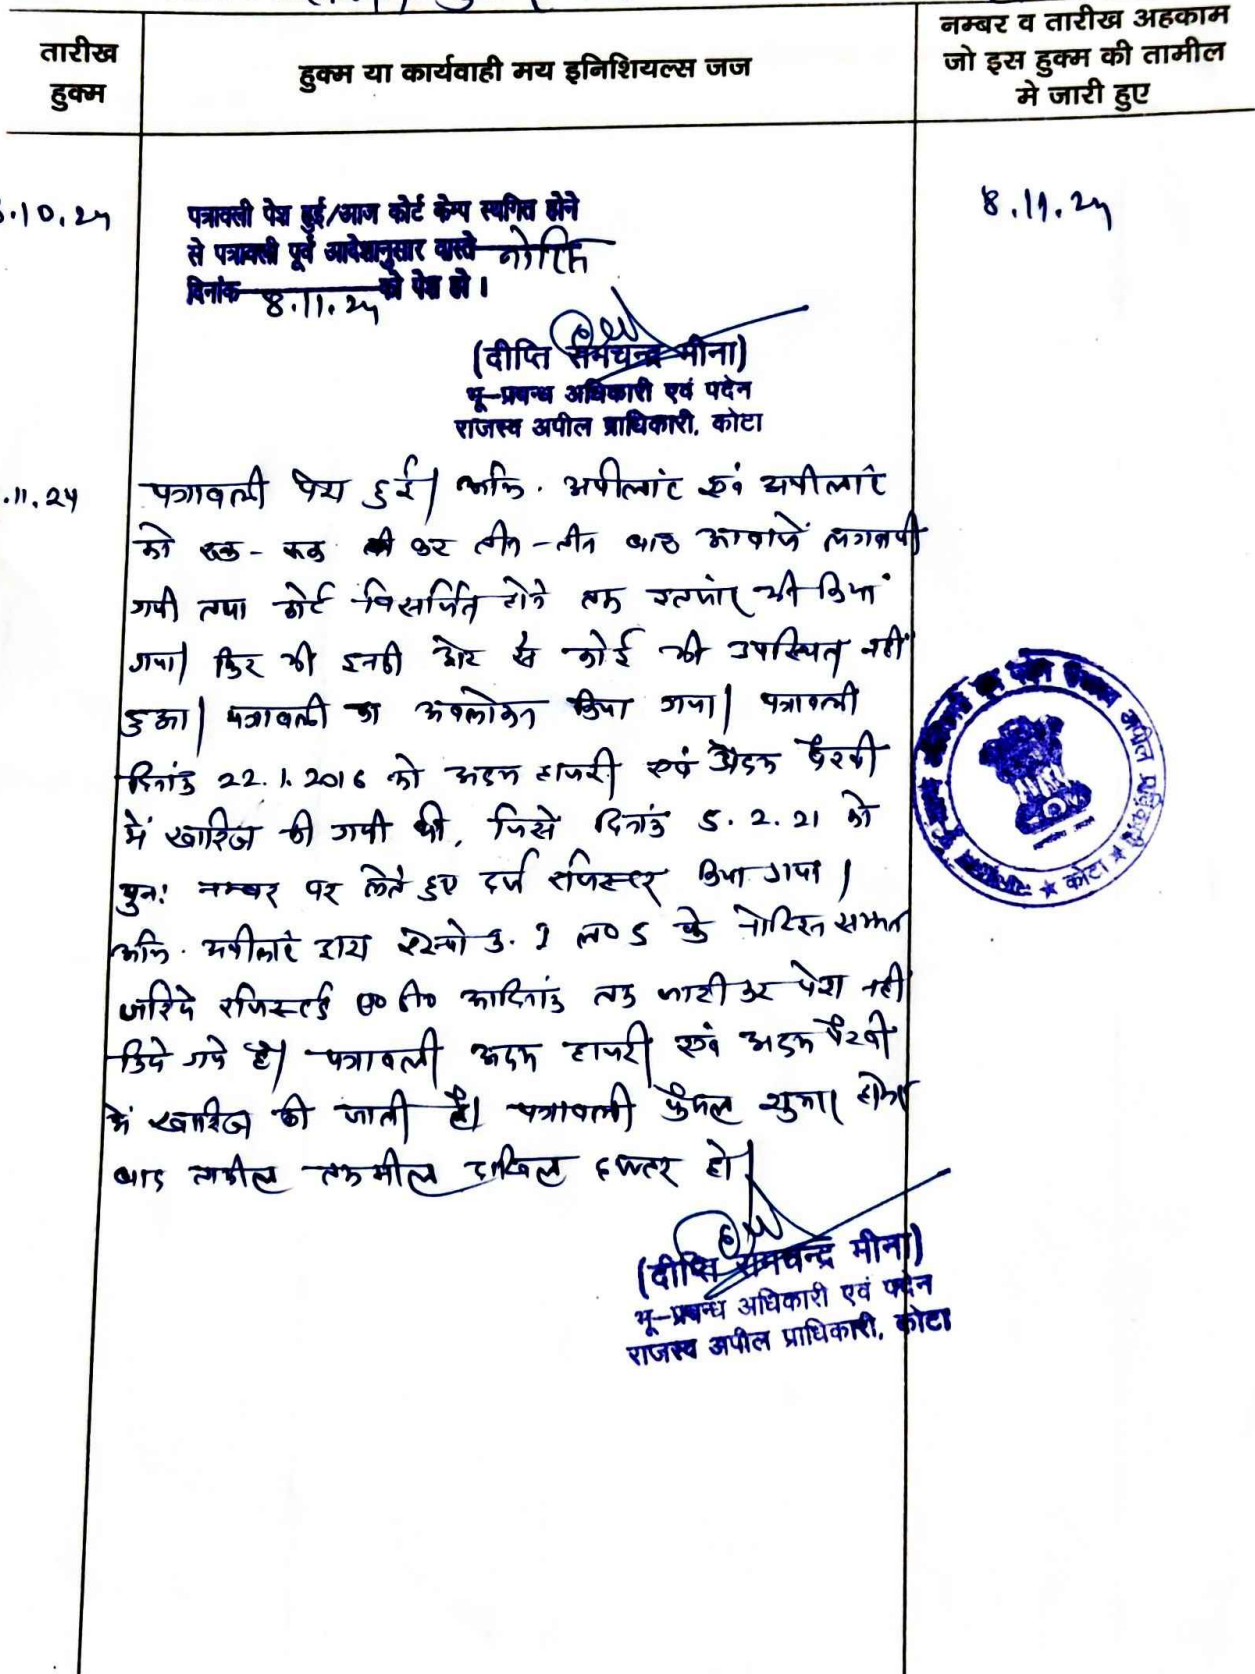 तारीख
हुक्म
हुक्म या कार्यवाही मय इनिशियल्स जज
नम्बर व तारीख अहकाम
जो इस हुक्म की तामील
मे जारी हुए
.10.24
पत्रावली पेश हुई/आज कोर्ट केम्प स्थगित होने
से पत्रावली पूर्व आदेशानुसार वास्ते नोटिस
दिनांक 8.11.24 को पेश हो ।
8.11.24
(दीप्ति रामचन्द्र मीना)
भू-प्रबन्ध अधिकारी एवं पदेन
राजस्व अपील प्राधिकारी, कोटा
.11.24
पत्रावली पेश हुई। अभि. अपीलांट एवं अपीलांट
को एक-एक कर तीन-तीन बार आवाजें लगवायी
गयी तथा कोर्ट विसर्जित होने तक इन्तजार भी किया
गया। फिर भी इनकी ओर से कोई भी उपस्थित नहीं
हुआ। पत्रावली का अवलोकन किया गया। पत्रावली
दिनांक 22.1.2016 को अदम हाजरी एवं अदम पैरवी
में खारिज की गयी थी, जिसे दिनांक 5.2.21 को
पुनः नम्बर पर लेते हुए दर्ज रजिस्टर किया गया।
अभि. अपीलांट द्वारा रेस्पो के नोटिस सम्मन
जरिये रजिस्टर्ड ए०डी० आदिनांक तक जारी कर पेश नहीं
किये गये है। पत्रावली अदम हाजरी एवं अदम पैरवी
में खारिज की जाती है। पत्रावली फैसल शुमार होकर
बाद तामील तकमील दाखिल दफ्तर हो।
(दीप्ति रामचन्द्र मीना)
भू-प्रबन्ध अधिकारी एवं पदेन
राजस्व अपील प्राधिकारी, कोटा
अपील प्राधिकारी ★ कोटा ★